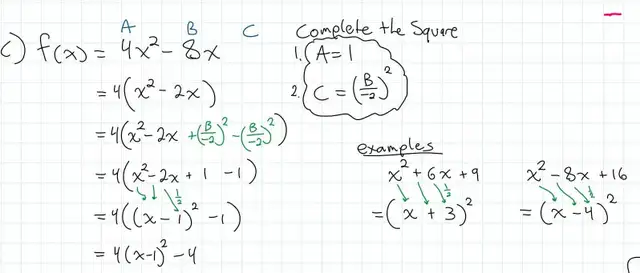 A B C
c) f(x) = 4x² - 8x
= 4(x² - 2x)
= 4(x² - 2x + (B/-2)² - (B/-2)²)
= 4(x² - 2x + 1 - 1)
1/2
= 4((x - 1)² - 1)
= 4(x-1)² - 4
Complete the Square
1. A = 1
2. C = (B/-2)²
examples
x² + 6x + 9
1/2
= (x + 3)²
x² - 8x + 16
1/2
= (x - 4)²